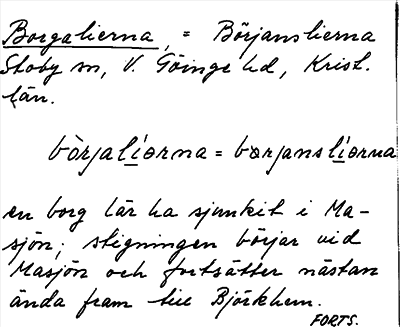 Borgalierna, = Börjanslierna
Stoby sn, V. Göinge hd, Krist.
län.
bòrjalíərna = bərjanslíərna
en borg lär ha sjunkit i Ma-
sjön; stigningen börjar vid
Masjön och fortsätter nästan
ända fram till Björkhem.
FORTS.